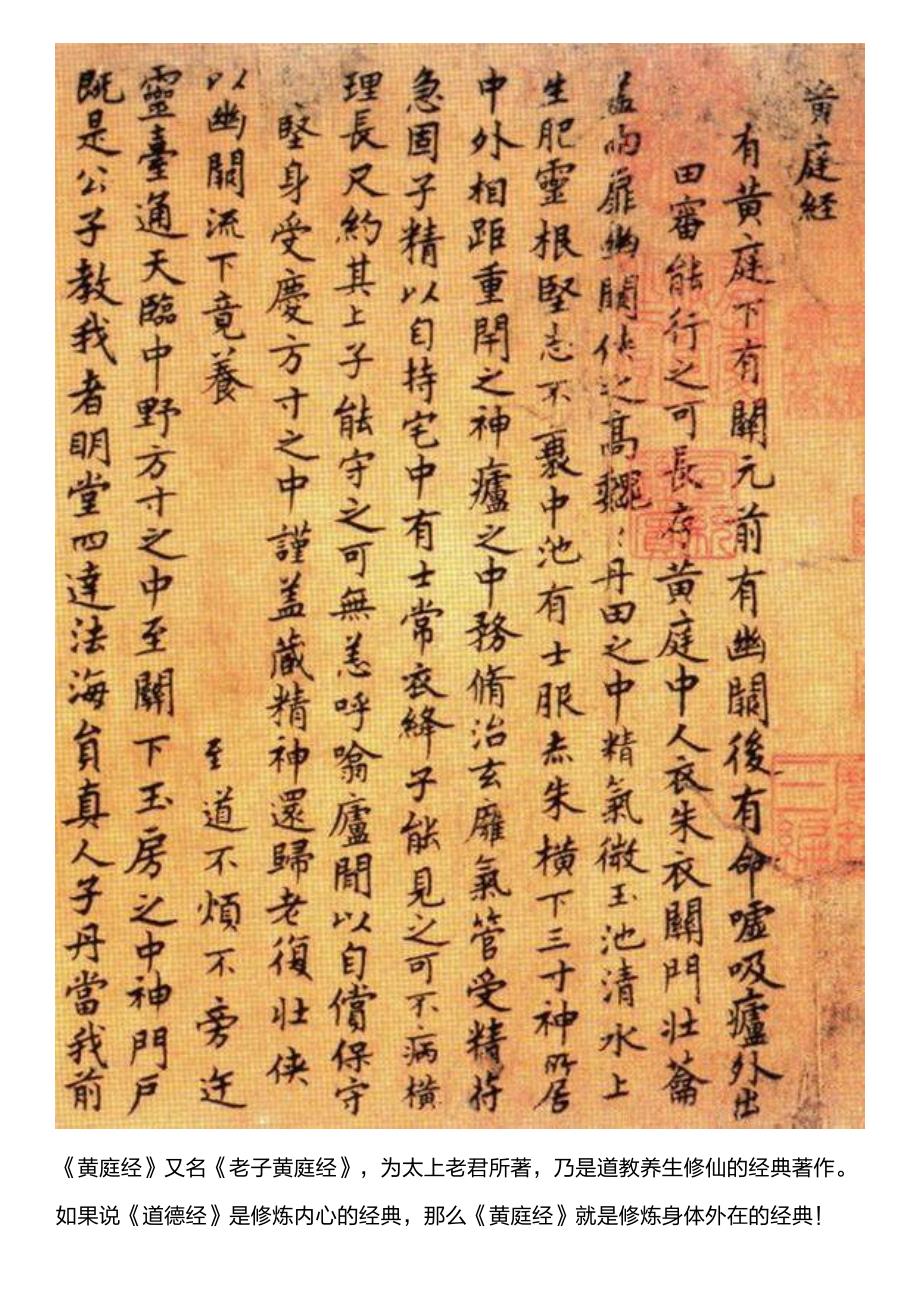 黃庭経
有黃庭下有關元前有幽闕後有命噓吸廬外出
田審能行之可長存黃庭中人衣朱衣關門壯蘥
盖兩扉幽闕俠之高巍丹田之中精氣微玉池清水上
生肥靈根堅志不衰中池有士服赤朱橫下三寸神所居
中外相距重閇之神廬之中務脩治玄廱氣管受精符
急固子精以自持宅中有士常衣絳子能見之可不病橫
理長尺約其上子能守之可無恙呼噏廬閒以自償保守
堅身受慶方寸之中謹盖藏精神還歸老復壯俠
以幽闕流下竟養 至道不煩不旁迕
靈臺通天臨中野方寸之中至關下玉房之中神門戶
既是公子教我者明堂四達法海負真人子丹當我前
《黄庭经》又名《老子黄庭经》，为太上老君所著，乃是道教养生修仙的经典著作。
如果说《道德经》是修炼内心的经典，那么《黄庭经》就是修炼身体外在的经典！